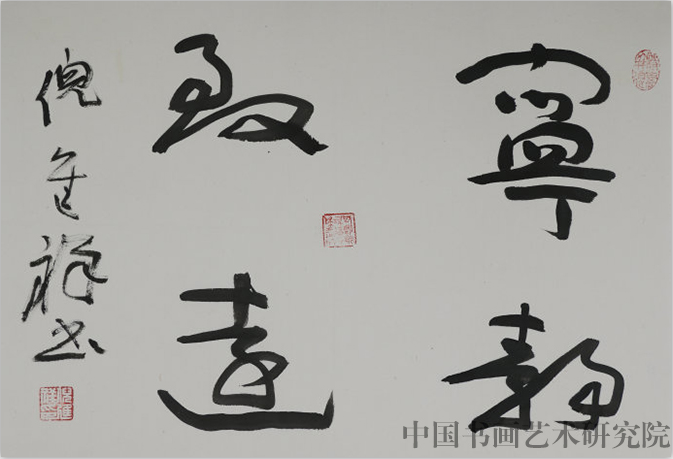 寧靜
致遠
倪進祥书
中国书画艺术研究院